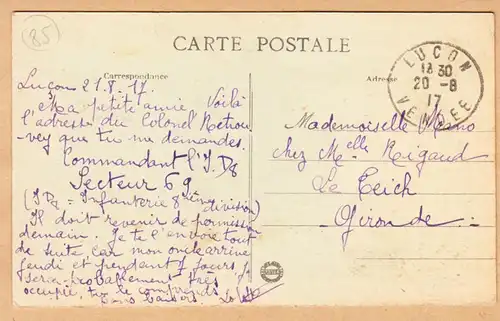 85
CARTE POSTALE
Correspondance
Adresse
LUÇON
18 30
20 - 8
17
VENDEE
Luçon 21.8.17
Ma petite amie Voilà
l'adresse du Colonel
vey que tu me demandes.
Commandant l'I D8
Secteur 69
(ID8 = Infanterie 8ième division)
Il doit revenir de permission
demain. Je te l'envoie tout
de suite car mon oncle arrive
jeudi et pendant 8 jours je
serai probablement très
occupée, tu le comprends
Bons baisers.
Mademoiselle
chez Melle Rigaud
Le Teich
Gironde